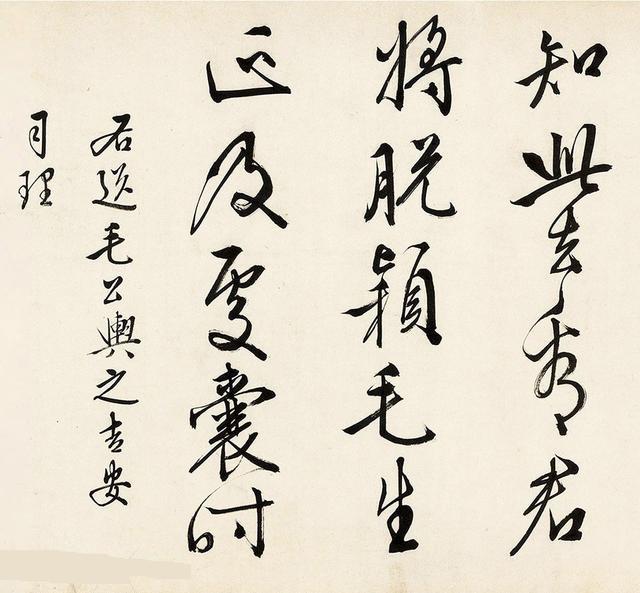 知此去看君
將脫穎毛生
正及處囊時
右送毛公輿之吉安
司理